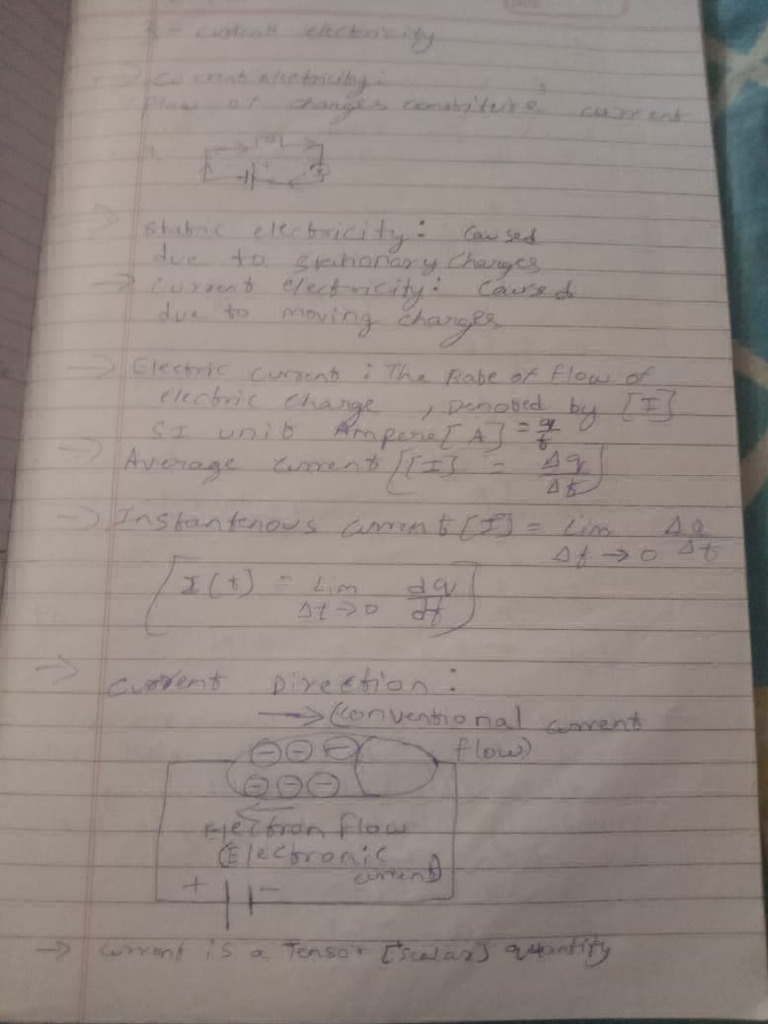 3 - current electricity
→ Current electricity:
Flow of charges constitute current
→ Static electricity: Caused
due to stationary charges
→ Current electricity: Caused
due to moving charges
→ Electric current: The Rate of flow of
electric charge, Denoted by [I]
SI unit Ampere [A] = q/t
→ Average current [[I] = Δq/Δt]
→ Instantenous current [I] = Lim Δt→0 Δq/Δt
[I(t) = Lim Δt→0 dq/dt]
→ Current Direction:
→ (Conventional current
flow)
⊖ ⊖ ⊖
⊖ ⊖ ⊖
←
Electron flow
(Electronic
current)
+ −
→ Current is a Tensor [scalar] quantity